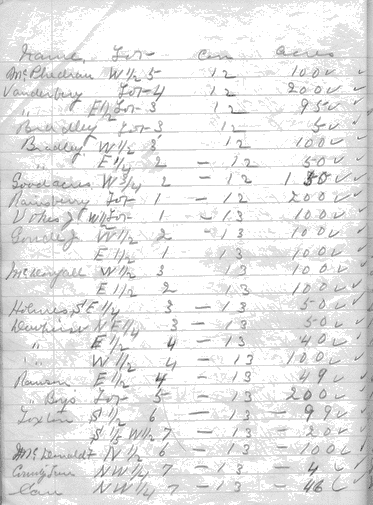 Name, Lot Con acres
McPhedran W 1/2 5 12 100 ✓
Vanderburg Lot 4 12 200 ✓
" E 1/2 Lot 3 12 95 ✓
Bradley Lot 3 12 5 ✓
Bradley W 1/2 3 12 100 ✓
" E 1/4 2 - 12 50 ✓
Goodacres W 3/4 2 - 12 150 ✓
Ramsbury Lot 1 - 12 200 ✓
Vokes J W 1/2 Lot 1 - 13 100 ✓
W 1/2 2 - 13 100 ✓
E 1/2 1 13 100 ✓
W 1/2 3 13 100 ✓
E 1/2 2 13 100 ✓
Holmes, S E 1/4 3 - 13 50 ✓
N E 1/4 3 - 13 50 ✓
" E 1/4 4 - 13 40 ✓
" W 1/2 4 - 13 100 ✓
Ransom E 1/2 4 - 13 49 ✓
" Boys Lot 5 - 13 - 200 ✓
Loxton S 1/2 6 - 13 - 99 ✓
S 1/5 W 1/2 7 - 13 - 20 ✓
McDonald N 1/2 6 - 13 - 100 ✓
N W 1/4 7 - 13 - 4 ✓
N W 1/4 7 - 13 - 46 ✓